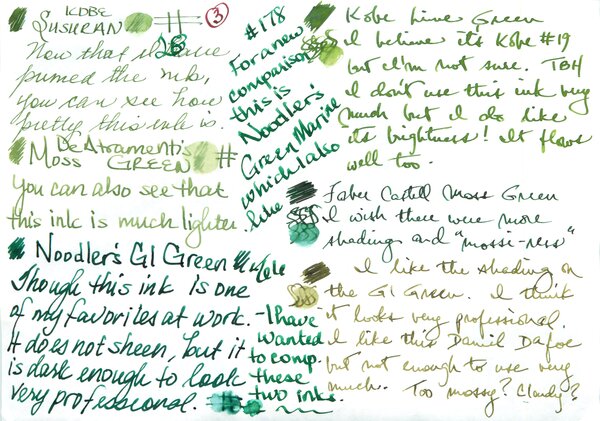 KOBE
SUSHEAN
3
Now that I have
primed the nib,
you can see how
pretty this ink is.
DeAtramentis
Moss GREEN #
You can also see that
this ink is much lighter.
Noodler's GI Green
Though this ink is one
of my favorites at work.
It does not sheen, but it
is dark enough to look
very professional.
#178
For a new
comparison
this is
Noodler's
Green Marine
which I also
like
- I have
wanted
to comp.
these
two inks.
Kobe Lime Green
I believe it's Kobe #19
but I'm not sure. TBH
I don't use this ink very
much but I do like
its brightness! It flows
well too.
Faber Castell Moss Green
I wish there were more
shading and "mossi-ness"
I like the shading on
the GI Green. I think
it looks very professional.
I like this Daniel Dafoe
but not enough to use very
much. Too mossy? Cloudy?